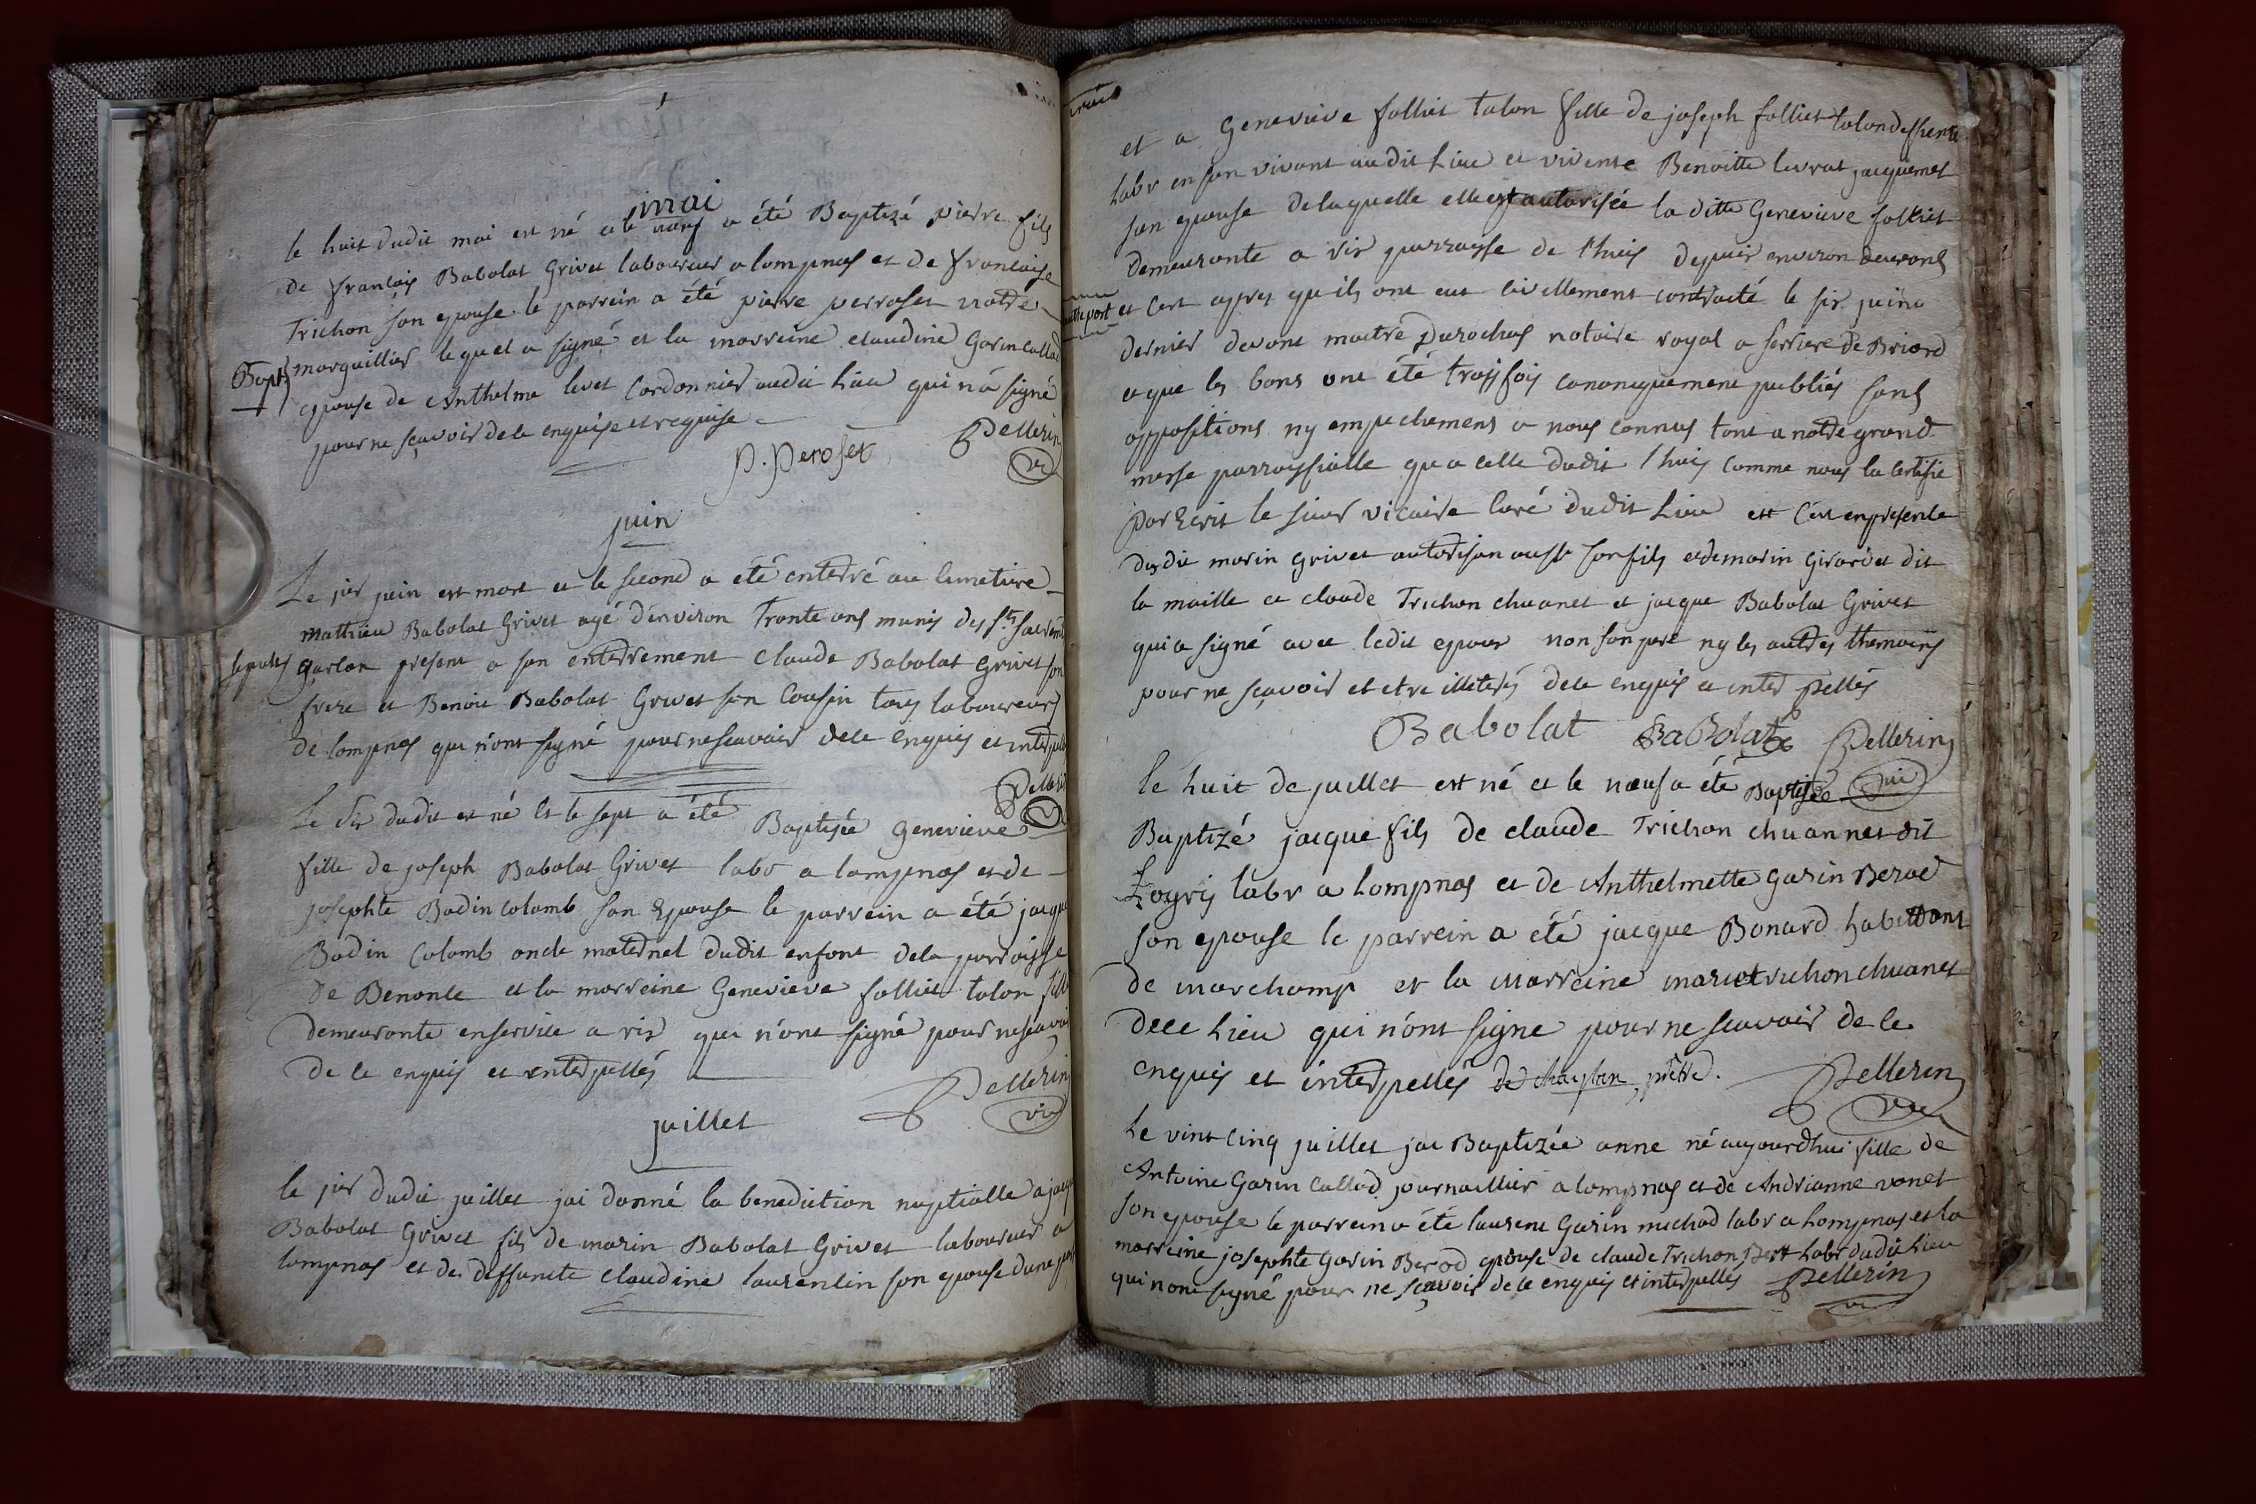 mai
le huit dudit mai est né et le neuf a été Baptizé pierre fils
de francois Babolat Grivet laboureur a lompnas et de francoise
Trichon son epouse le parrein a été pierre perroset notre
Bapt marguillier lequel a signé et la marreine claudine Garin Callod
epouse de Anthelme levet Cordonnier audit Lieu qui n'a signé
pour ne sçavoir de ce enquise et requise
P. Peroset Pellerin
vic
juin
Le 1er juin est mort et le second a été enterré au Cimetiere
mathieu Babolat Grivet agé d'environ Trante ans munis des sts sacrem
sepult garcon present a son enterrement Claude Babolat Grivet son
frere et Benoit Babolat Grivet son Cousin tous laboureurs
de lompnas qui n'ont signé pour ne scavoir de ce enquis et interpellé
Pellerin
vic
Le Six dudit est né et le sept a été Baptisée Genevieve
fille de joseph Babolat Grivet labr a lompnas et de
josephte Badin Colomb son Epouse le parrein a été jacque
Badin Colomb oncle maternel dudit enfant de la parroisse
de Benonce et la marreine Genevieve folliet talon fille
demeurante en service a rix qui n'ont signé pour ne scavoir
de ce enquis et interpellés
Pellerin
vic
juillet
le 1er dudit juillet jai donné la benediction nuptialle a jacque
Babolat Grivet fils de marin Babolat Grivet laboureur a
lompnas et de deffuncte Claudine laurentin son epouse d'une part
et a Genevieve folliet talon fille de joseph folliet talon deffunct
labr en son vivant audit Lieu et vivente Benoitte levrat jacquemet
son epouse de laquelle elle est autorisée la ditte Genevieve folliet
demeurante a rix parroisse de l'huis depuis environ deux ans
autre part et c'est apres qu'ils ont eut civillement contracté le six juin
dernier devant maitre Durochas notaire royal a serriere de Briord
et que les bans ont été trois fois canoniquement publiés sans
oppositions ny empechemens a nous connus tant a notre grand
messe parroissialle qu'a celle dudit l'huis comme nous la certifié
par Ecrit le sieur vicaire Curé dudit Lieu et c'est en presence
dudit marin Grivet autorisan aussi son fils et de marin Girardet dit
la maille et claude Trichon chuanet et jacque Babolat Grivet
qui a signé avec ledit epoux non son pere ny les autres themoins
pour ne sçavoir et etre illeterés de ce enquis et inter pellés
Babolat BaBolat Pellerin
vic
le huit de juillet est né et le neuf a été Baptisée
Baptizé jacque fils de claude Trichon chuannet dit
Logris labr a Lompnas et de Anthelmette Garin Berod
son epouse le parrein a été jacque Bonard habittant
de marchamp et la marreine marie trichon chuanet
de ce Lieu qui n'ont signe pour ne scavoir de ce
enquis et interpellés prêtre. Pellerin
vic
Le vint cinq juillet jai Baptizée anne né aujourd'hui fille de
Antoine Garin Callod journaillier a lompnas et de Andrianne vonet
son epouse le parrein a été laurent Garin michod labr a Lompnas et la
marreine josephte Garin Berod epouse de claude Trichon Labr dudit Lieu
qui n'ont signé pour ne sçavoir de ce enquis et interpellés Pellerin
vic